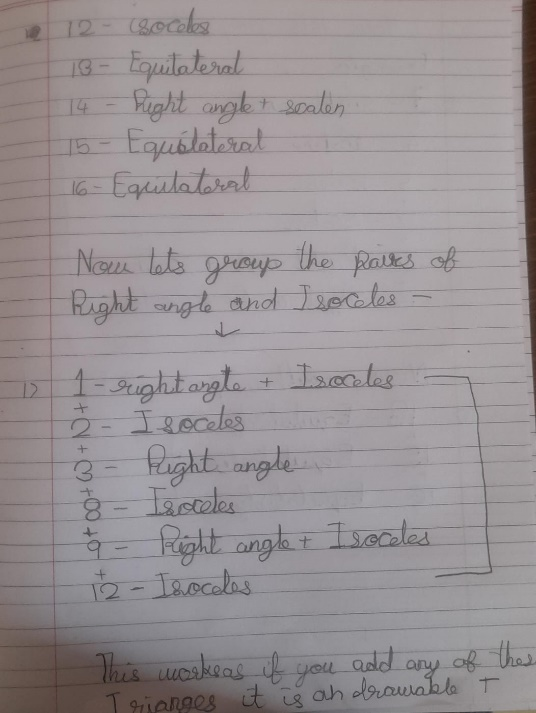 12 - Isoceles
13 - Equitateral
14 - Right angle + scalen
15 - Equilateral
16 - Equilateral
Now lets group the Paires of
Right angle and Isoceles -
↓
1) 1 - right angle + Isoceles
+
2 - Isoceles
+
3 - Right angle
+
8 - Isoceles
+
9 - Right angle + Isoceles
+
12 - Isoceles
This workeas if you add any of thes
Trianges it is an drawable T